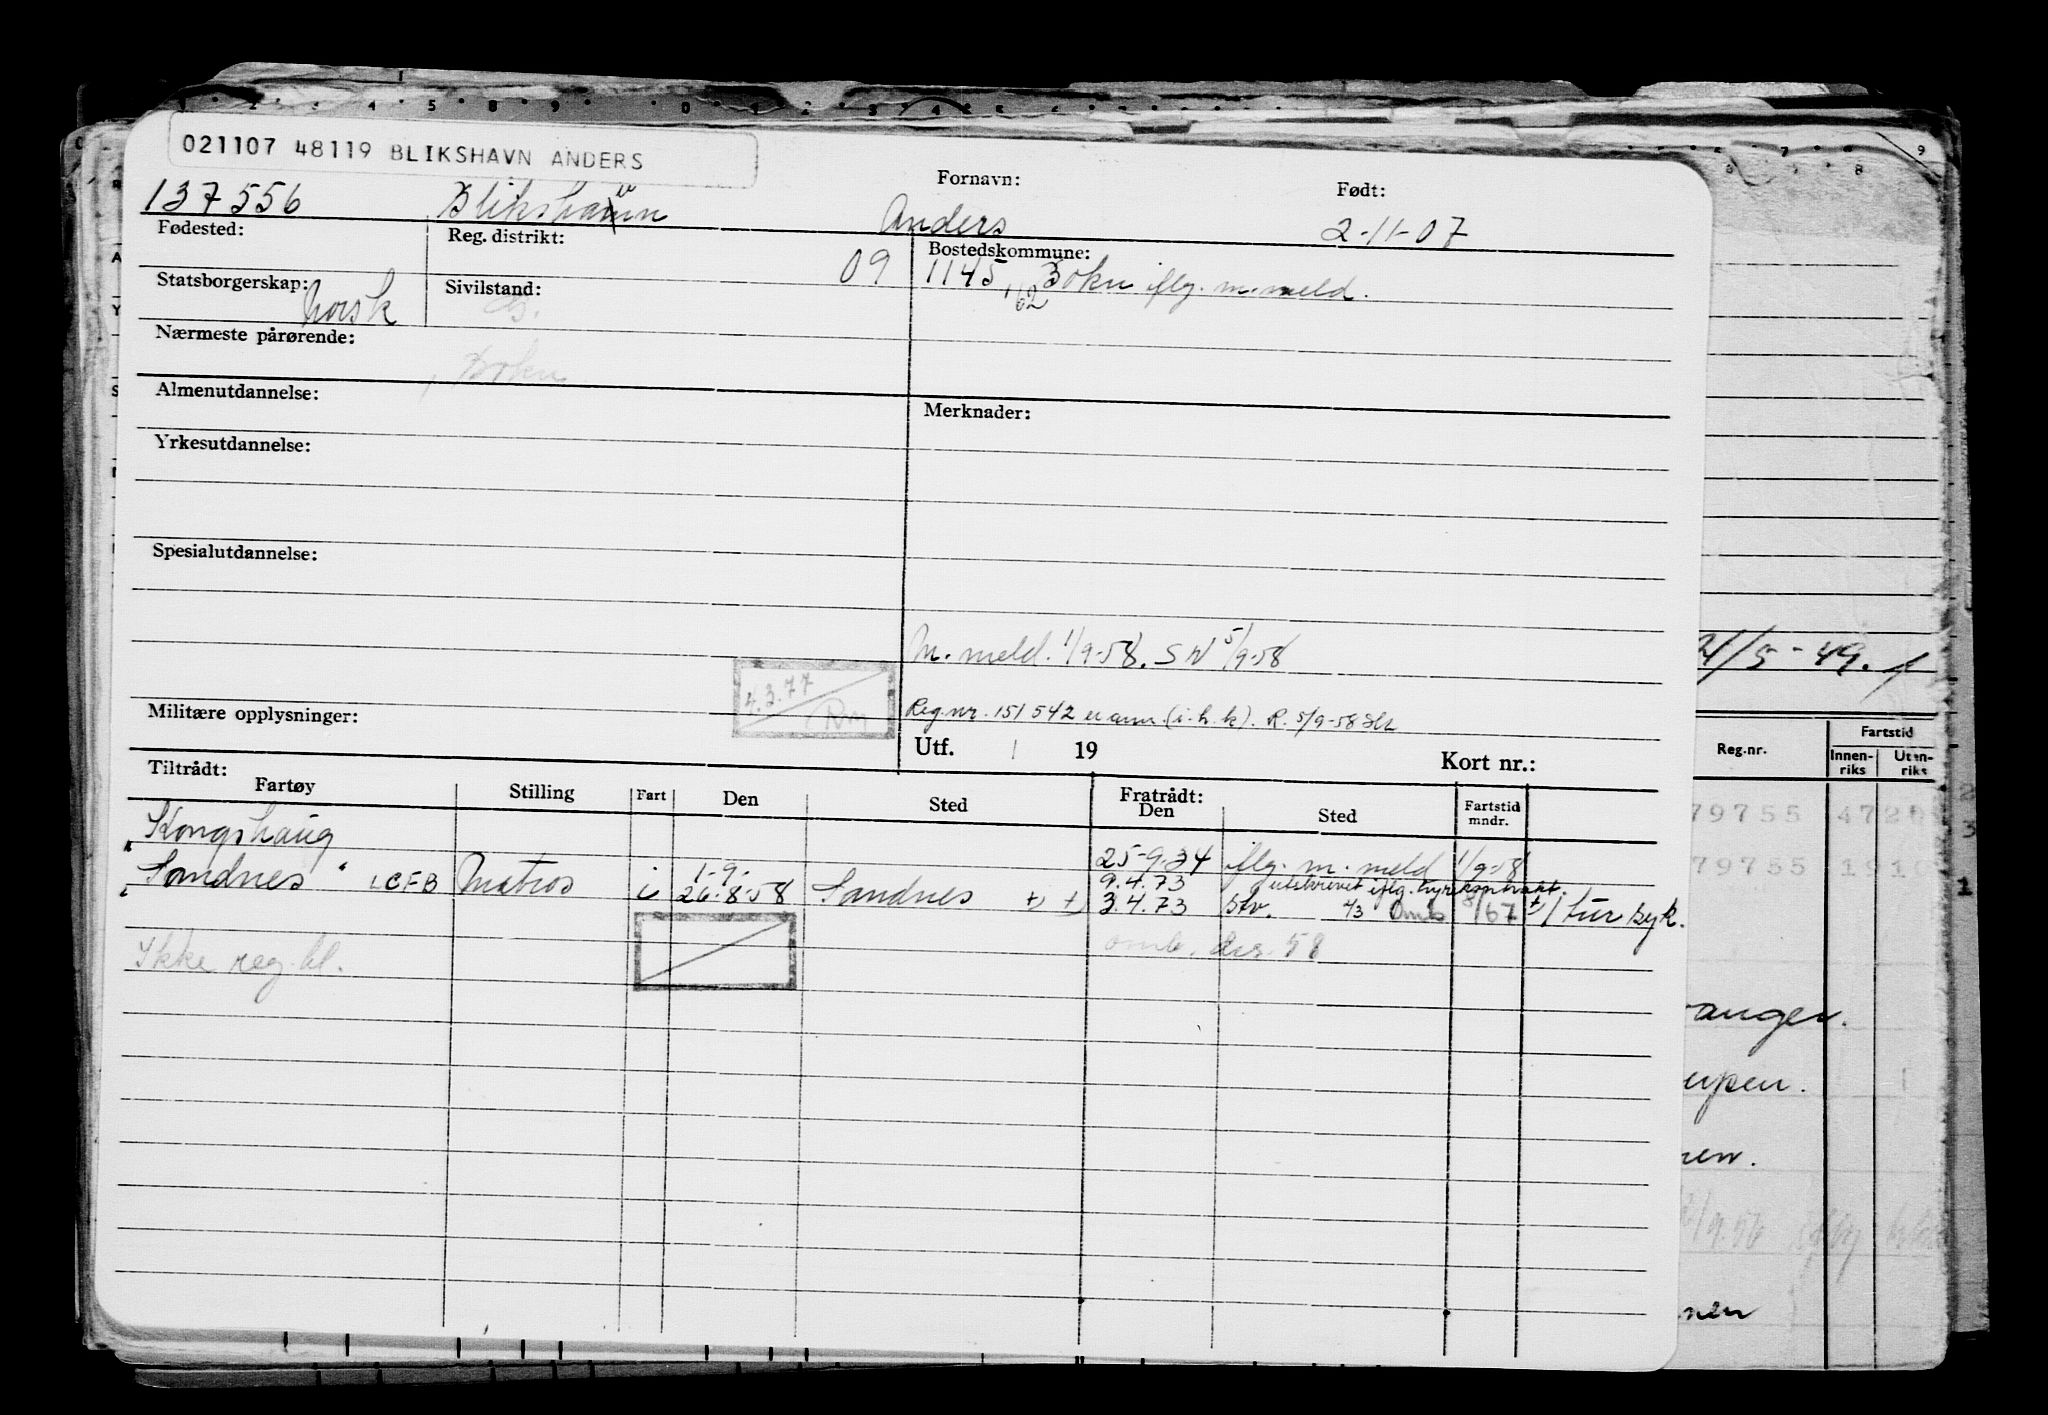 021107 48119 BLIKSHAVN ANDERS
Fornavn: Født:
137556 Blikshavn Anders 2-11-07
Fødested: Reg. distrikt: Bostedskommune:
09 1145 Bokn iflg. m.meld.
1/62
Statsborgerskap: Norsk Sivilstand: G.
Nærmeste pårørende:
Bokn
Almenutdannelse: Merknader:
Yrkesutdannelse:
Spesialutdannelse:
M. meld. 1/9-58. SN 5/9-58
4.3.77
Militære opplysninger: Reg nr. 151542 er ann. (i.h.k). R. 5/9-58
Utf. / 19 Kort nr.:
Tiltrådt: Fratrådt:
Fartøy Stilling Fart Den Sted Den Sted Fartstid mndr.
Kongshaug 25-9-34 iflg. m. meld 1/9-58
1-9- 9.4.73 utskrevet iflg. hyrekontrakt.
"Sandnes" LCFB Matros i 26-8-58 Sandnes +) +) 3.4.73 Stv. 4/3 Omb 8/67 +) 1 tur syk.
omb. des. 58
Ikke reg. bl.
21/5-49.
Reg.nr. Fartstid
Innen-riks Uten-riks
79755 472
79755 191
anger.
rpen.
nen.
/9.56
nen